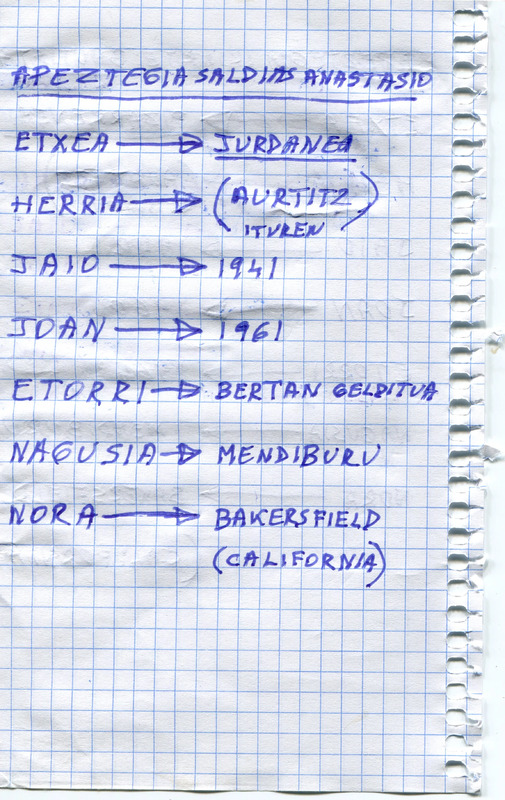 APEZTEGIA SALDIAS ANASTASIO
ETXEA → JURDANEA
HERRIA → (AURTITZ
ITUREN)
JAIO → 1941
JOAN → 1961
ETORRI → BERTAN GELDITUA
NAGUSIA → MENDIBURU
NORA → BAKERSFIELD
(CALIFORNIA)